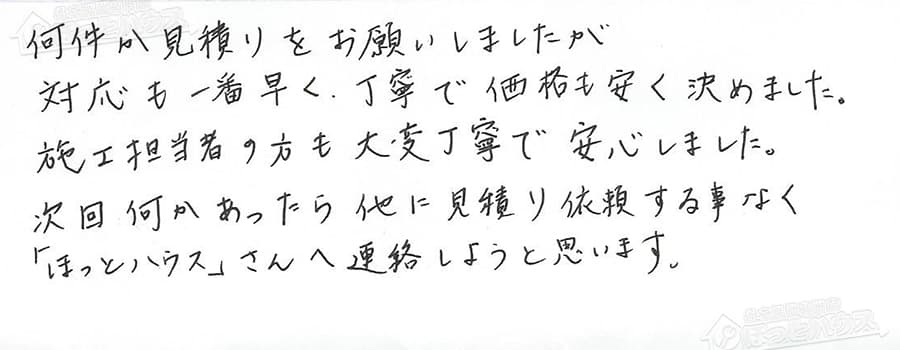 何件か見積りをお願いしましたが
対応も一番早く、丁寧で価格も安く決めました。
施工担当者の方も大変丁寧で安心しました。
次回何かあったら他に見積り依頼する事なく
「ほっとハウス」さんへ連絡しようと思います。
ほっとハウス